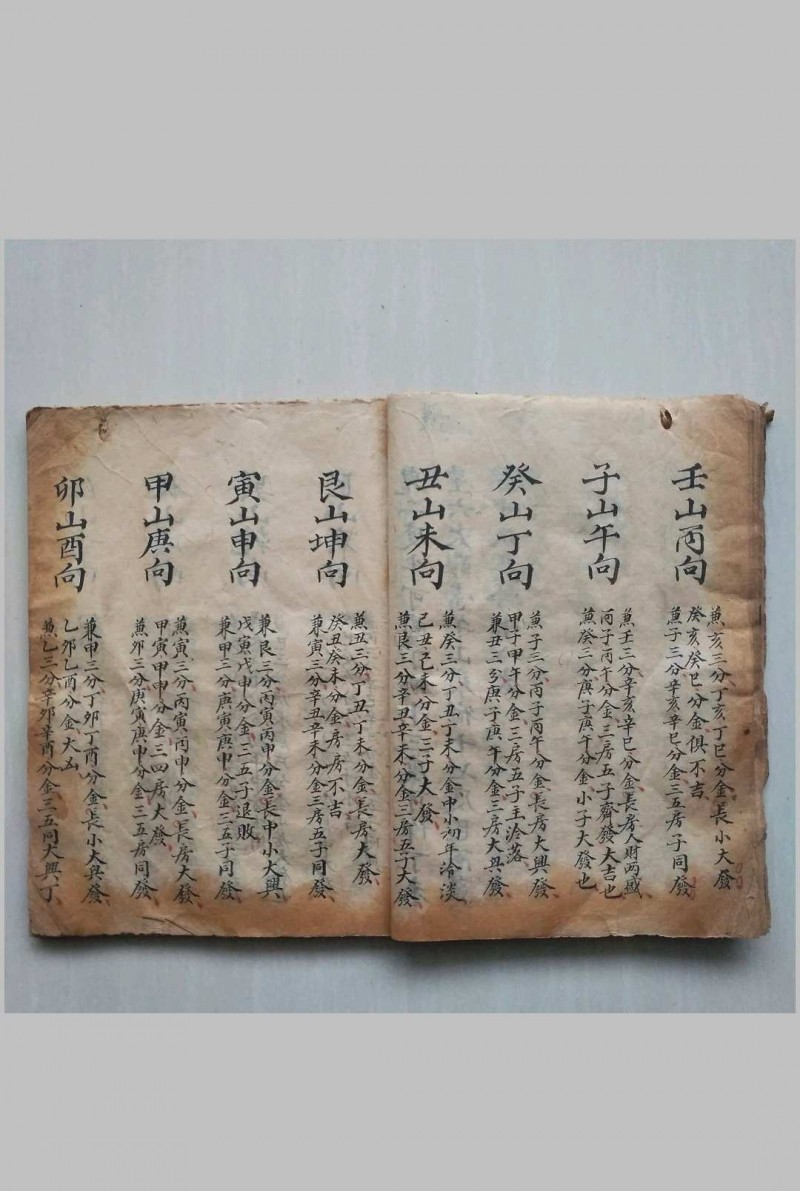 壬山丙向
兼亥三分丁亥丁巳分金長小大發
癸亥癸巳分金俱不吉
兼子三分辛亥辛巳分金三五房子同發
子山午向
兼壬三分辛亥辛巳分金長房人財两盛
丙子丙午分金三房五子齊發大吉也
兼癸三分庚子庚午分金小子大發也
癸山丁向
兼子三分丙子丙午分金長房大興發
甲子甲午分金三房五子主冷落
兼丑三分庚子庚午分金三房大興發
丑山未向
兼癸三分丁丑丁未分金中小初年冷淡
己丑己未分金三子大發
兼艮三分辛丑辛未分金三房五子大發
艮山坤向
兼丑三分丁丑丁未分金長房大發
癸丑癸未分金房房不吉
兼寅三分辛丑辛未分金三房五子同發
寅山申向
兼艮三分丙寅丙申分金長中小大興
戊寅戊申分金三五子退敗
兼甲三分庚寅庚申分金三五子同發
甲山庚向
兼寅三分丙寅丙申分金長房大發
甲寅甲申分金三四房大發
兼卯三分庚寅庚申分金三五房同發
卯山酉向
兼申三分丁卯丁酉分金長小大興發
乙卯乙酉分金大凶
兼乙三分辛卯辛酉分金三五同大興丁